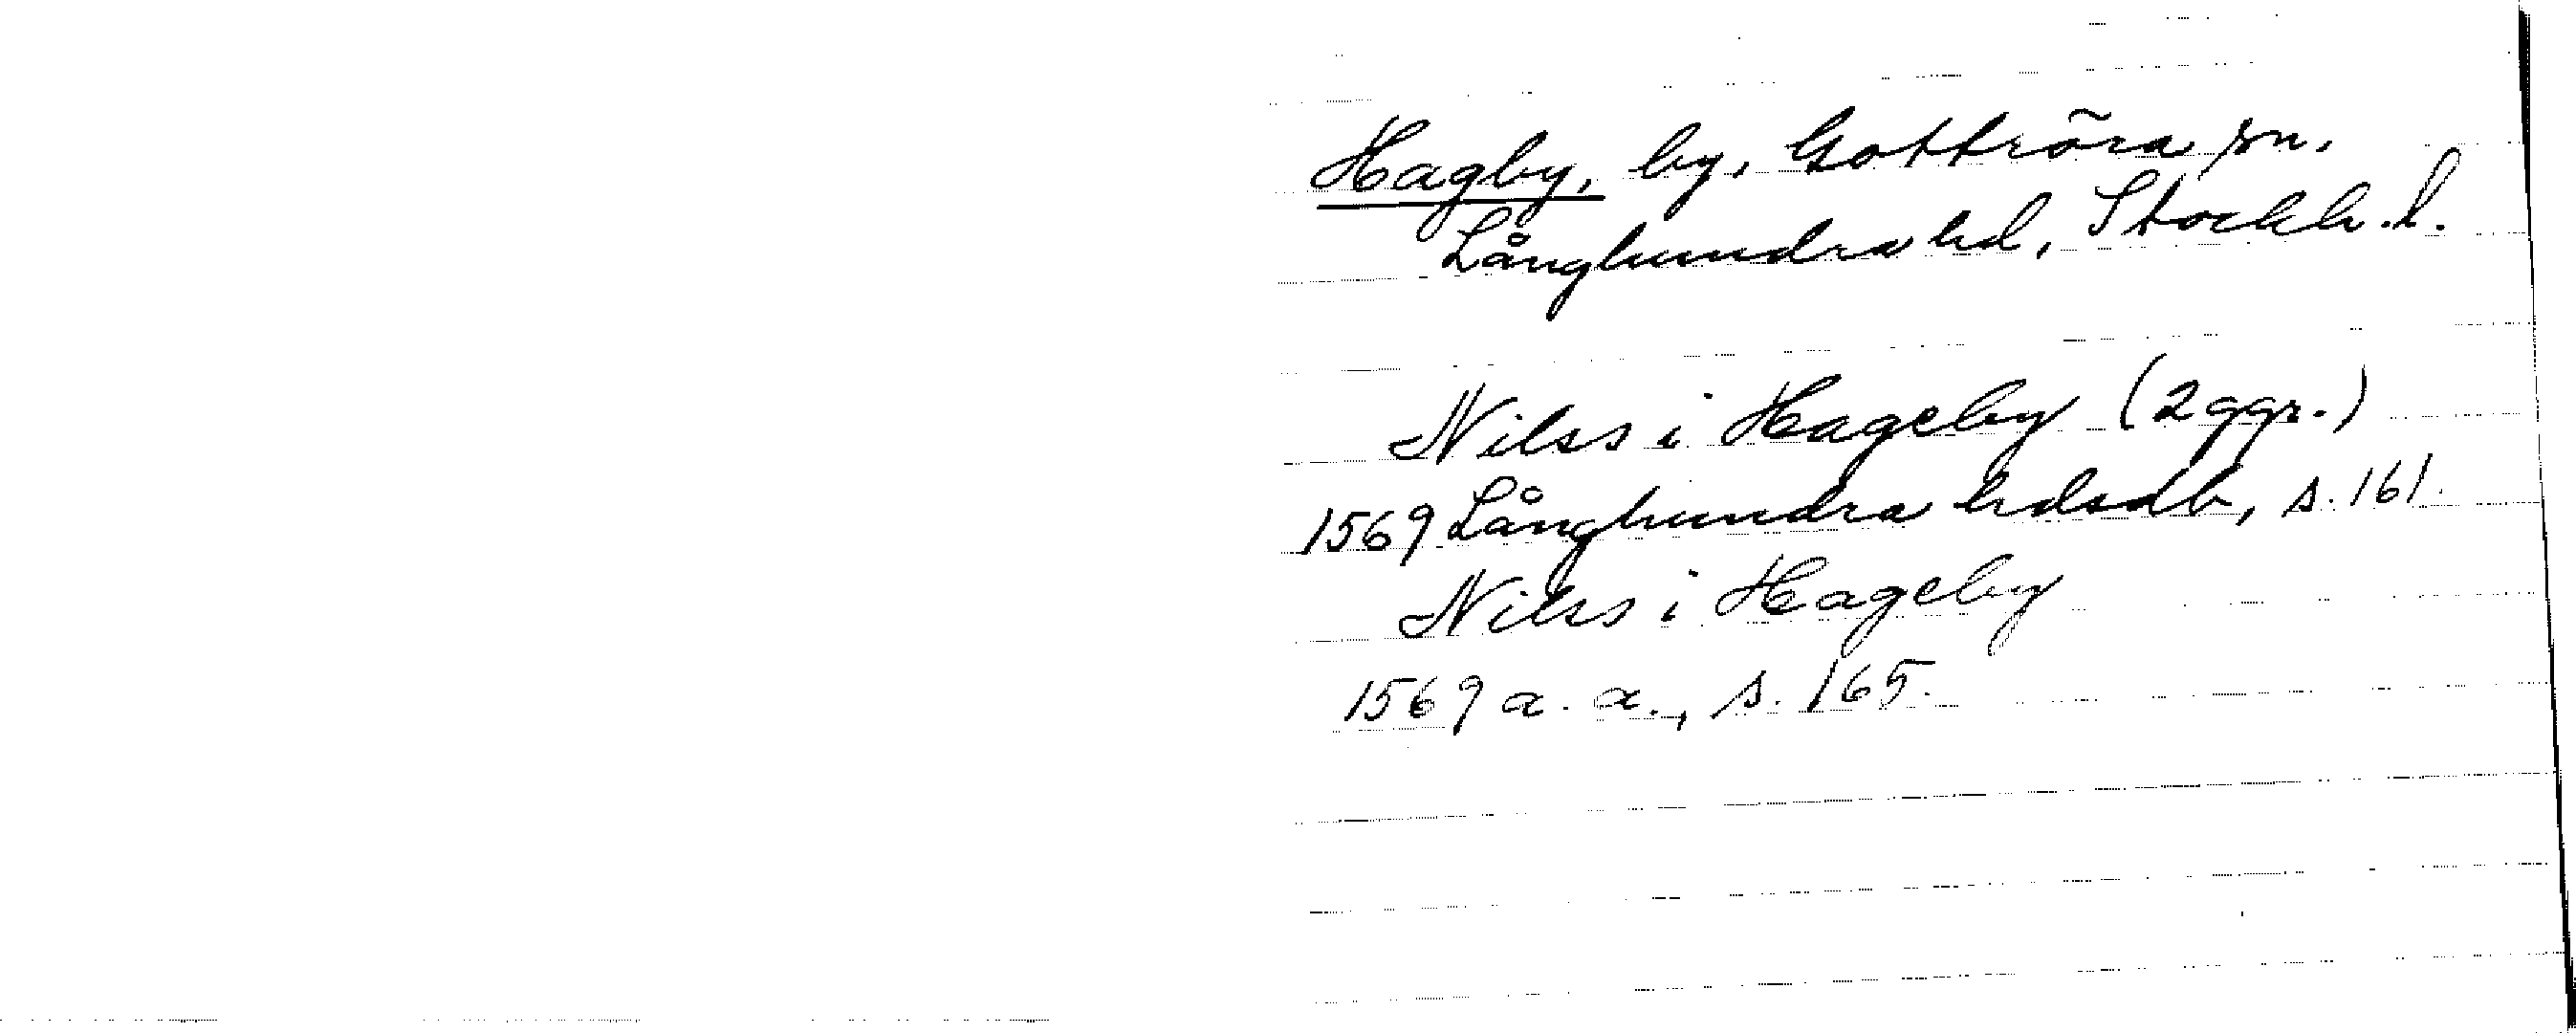 Hagby, by, Gottröra sn.
Långhundra hd, Stockh. l.
Nilss i Hageby (2 ggr.)
1569 Långhundra hdsdb, s. 161.
Nilss i Hageby
1569 a. a., s. 165.